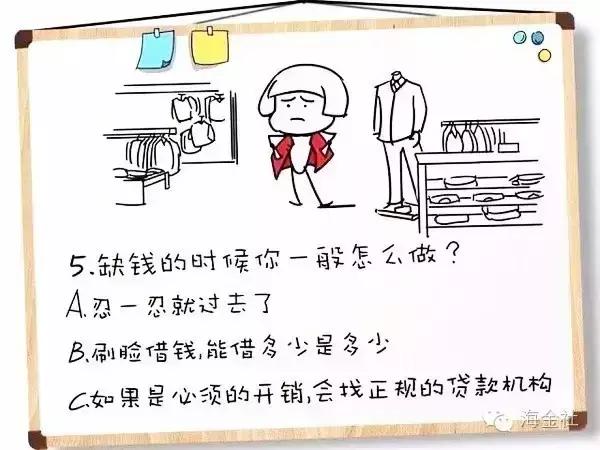 5.缺钱的时候你一般怎么做?
A.忍一忍就过去了
B.刷脸借钱,能借多少是多少
C.如果是必须的开销,会找正规的贷款机构
海金社